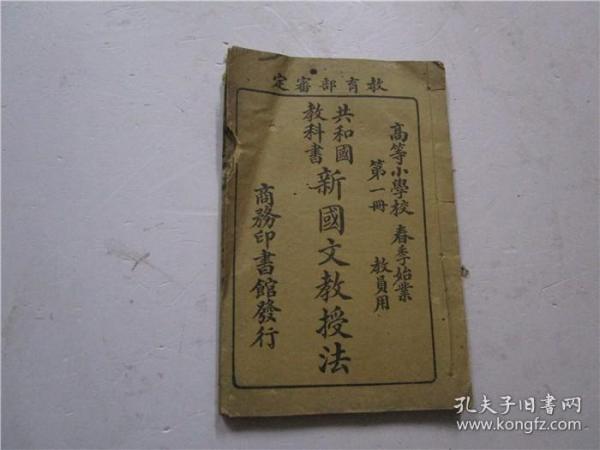 教育部審定
高等小學校 春季始業
第一冊 教員用
共和國
教科書
新國文教授法
商務印書館發行
孔夫子旧书网
www.kongfz.com